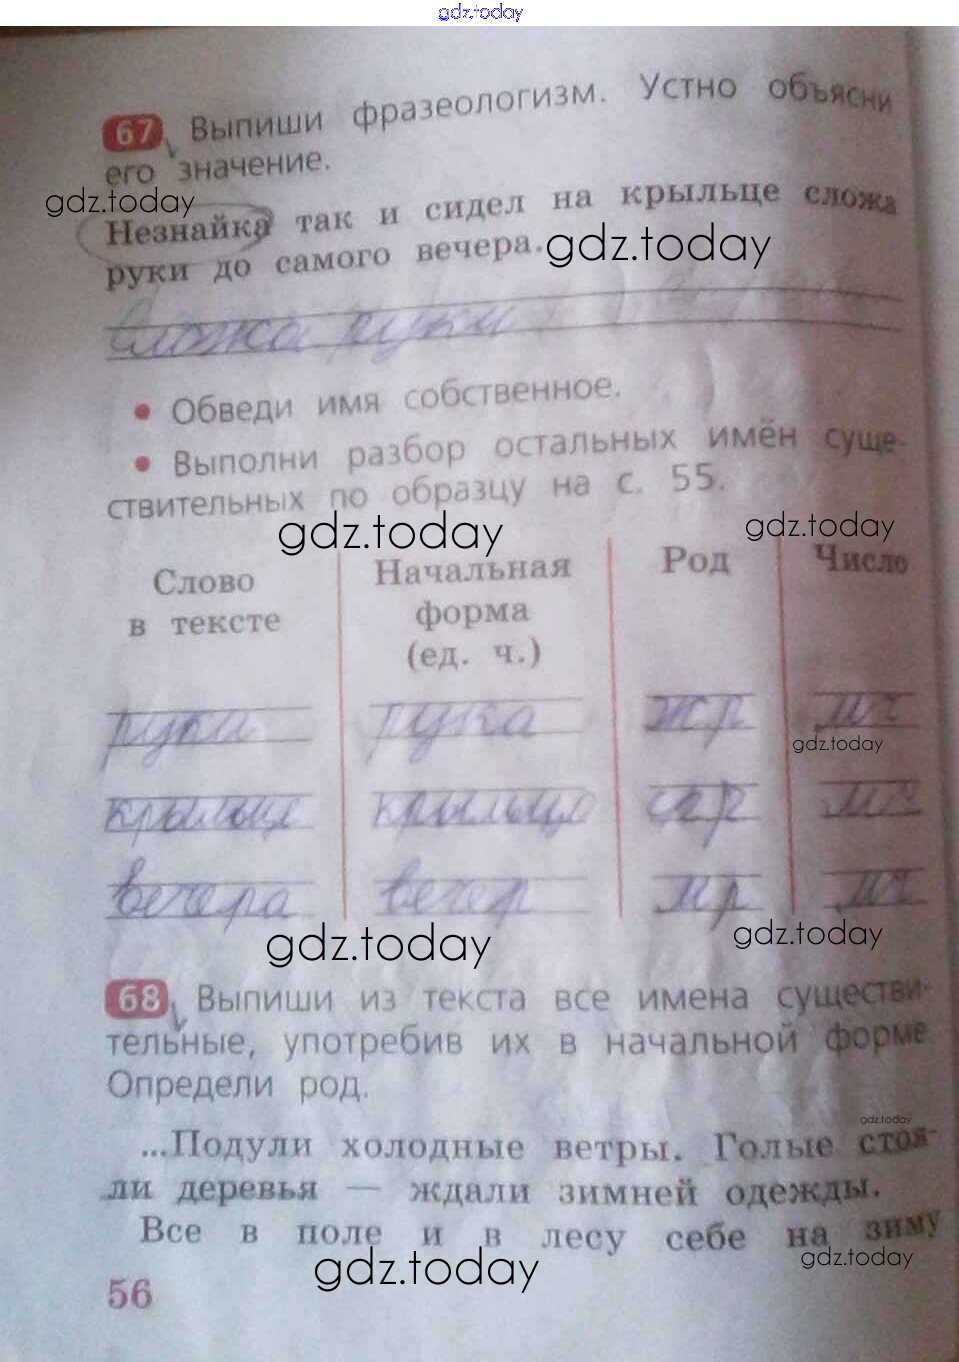 gdz.today
67 Выпиши фразеологизм. Устно объясни
его значение.
gdz.today
Незнайка так и сидел на крыльце сложа
руки до самого вечера.
gdz.today
Сложа руки
• Обведи имя собственное.
• Выполни разбор остальных имён суще-
ствительных по образцу на с. 55.
gdz.today
gdz.today
Слово в тексте
Начальная форма (ед. ч.)
Род
Число
руки рука жр мч
gdz.today
крыльце крыльцо ср
вечера вечер мр мч
gdz.today
gdz.today
68 Выпиши из текста все имена существи-
тельные, употребив их в начальной форме.
Определи род.
gdz.today
...Подули холодные ветры. Голые стоя-
ли деревья — ждали зимней одежды.
Все в поле и в лесу себе на зиму
gdz.today
gdz.today
56